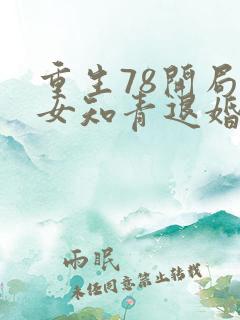 重生78开局
女知青退婚
雨眠
未经同意禁止转载